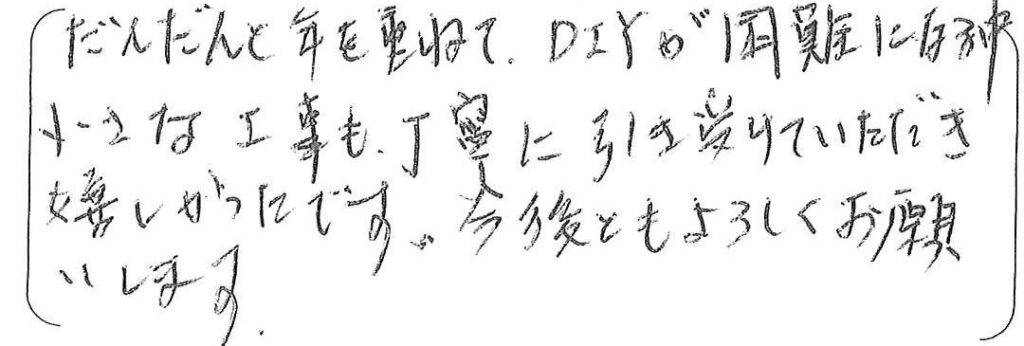 だんだんと年を重ねて、DIYが困難になる中
小さな工事も、丁寧に引き受けていただき
嬉しかったです。今後ともよろしくお願
いします.